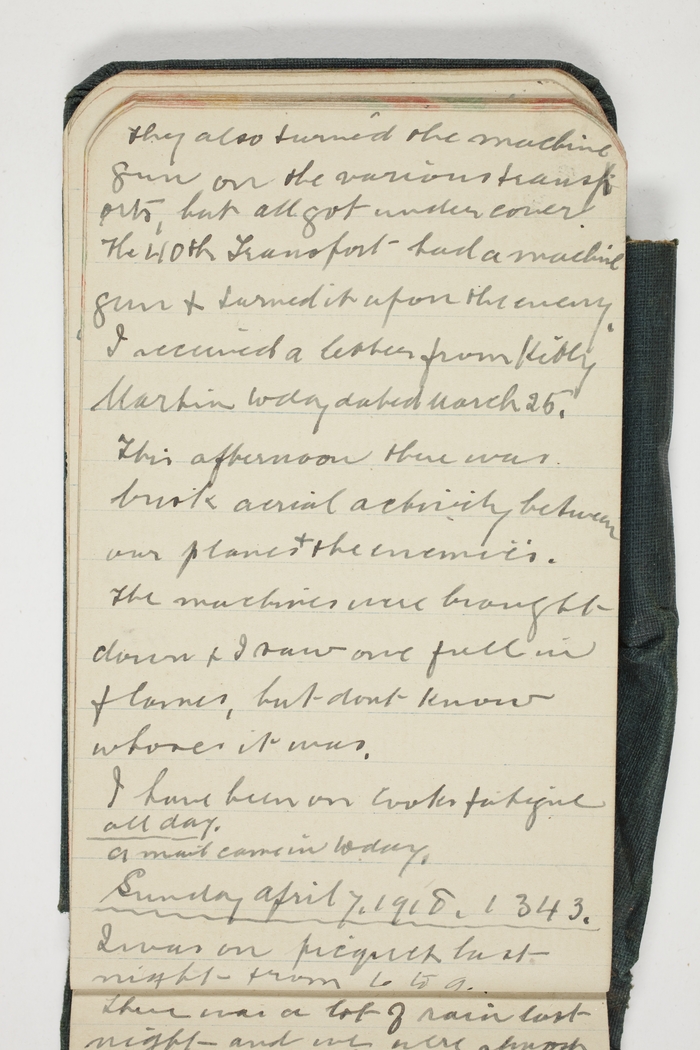 they also turned the machine
gun on the various transp
orts, but all got under cover
The 40th Transport had a machine
gun & turned it upon the enemy.
I received a letter from Kitty
Martin today dated March 25.
This afternoon there was
brisk aerial activity between
our planes + the enemies.
The machines were brought
down & I saw one fall in
flames, but dont know
whoses it was.
I have been on cooks fatigue
all day.
A mail came in today.
Sunday April 7. 1918. 1343.
I was on picquet last
night from 6 to 9.
There was a lot of rain last
night and we were